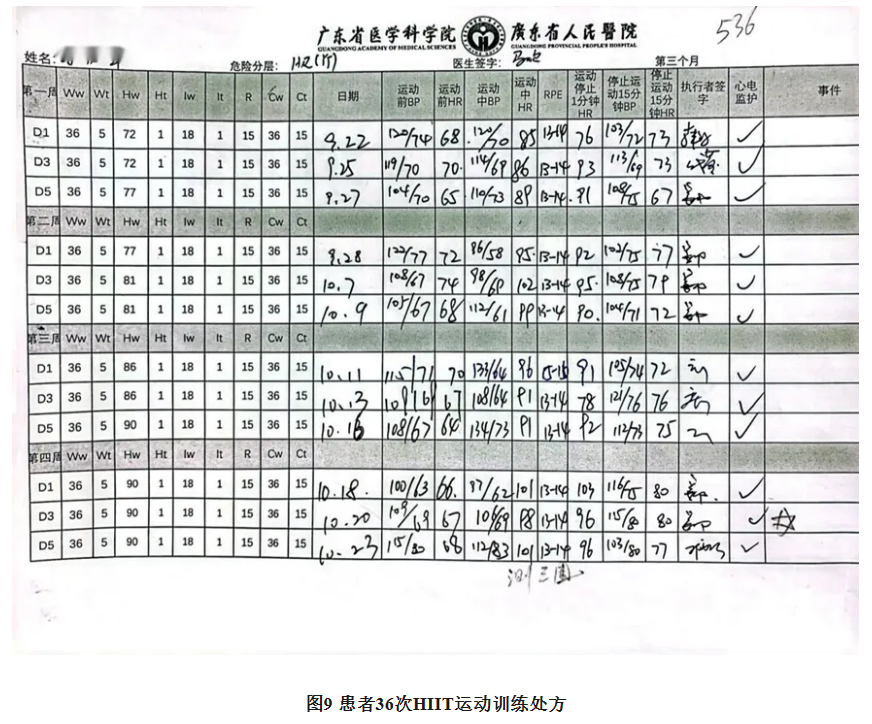 536
广东省医学科学院 廣东省人民醫院
GUANGDONG ACADEMY OF MEDICAL SCIENCES GUANGDONG PROVINCIAL PEOPLE'S HOSPITAL
姓名: 危险分层: 医生签字: 第三个月
第一周 Ww Wt Hw Ht Iw It R Cw Ct 日期 运动前BP 运动前HR 运动中BP 运动中HR RPE 运动停止1分钟HR 停止运动15分钟BP 停止运动15分钟HR 执行者签字 心电监护 事件
D1 36 5 72 1 18 1 15 36 15 9.22 120/74 68 120/70 85 13-14 76 103/72 73 ✓
D3 36 5 72 1 18 1 15 36 15 9.25 119/70 70 114/69 86 13-14 93 113/69 73 ✓
D5 36 5 77 1 18 1 15 36 15 9.27 104/70 65 110/73 89 13-14 91 108/75 67 ✓
第二周 Ww Wt Hw Ht Iw It R Cw Ct
D1 36 5 77 1 18 1 15 36 15 9.28 122/77 72 96/58 95 13-14 92 102/75 77 ✓
D3 36 5 81 1 18 1 15 36 15 10.7 108/67 74 98/69 102 13-14 95 108/75 79 ✓
D5 36 5 81 1 18 1 15 36 15 10.9 105/67 68 112/61 99 13-14 90 104/71 72 ✓
第三周 Ww Wt Hw Ht Iw It R Cw Ct
D1 36 5 86 1 18 1 15 36 15 10.11 115/71 70 133/64 96 15-16 91 105/74 72 ✓
D3 36 5 86 1 18 1 15 36 15 10.13 67 108/64 91 13-14 78 121/76 76 ✓
D5 36 5 90 1 18 1 15 36 15 10.16 108/67 64 134/73 91 13-14 92 112/73 75 ✓
第四周 Ww Wt Hw Ht Iw It R Cw Ct
D1 36 5 90 1 18 1 15 36 15 10.18 100/63 66 97/62 101 13-14 103 116/75 80 ✓
D3 36 5 90 1 18 1 15 36 15 10.20 109/69 67 106/69 98 13-14 96 115/80 80 ✓
D5 36 5 90 1 18 1 15 36 15 10.23 115/80 68 112/83 101 13-14 96 103/80 77 ✓
测三围
图9 患者36次HIIT运动训练处方